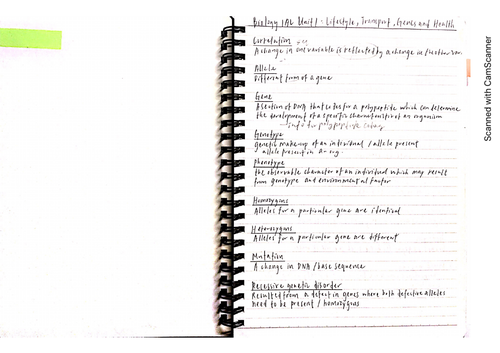 Biology IAL Unit 1 - Lifestyle, Transport, Genes and Health
Correlation
A change in one variable is reflected by a change in
Allele
Different from of a gene
Gene
A section of DNA that codes for a polypeptide which can determine
the development of a specific characteristic of an organism
info for polypeptide
Genotype
genetic makeup of an individual / allele present
allele present in a
Phenotype
the observable character of an individual which may result
from genotype and environmental factor
Homozygous
Alleles for a particular gene are identical
Heterozygous
Alleles for a particular gene are different
Mutation
A change in DNA / base sequence
Recessive genetic disorder
Resulted from a defect in genes where both defective alleles
need to be present / homozygous
Scanned with CamScanner